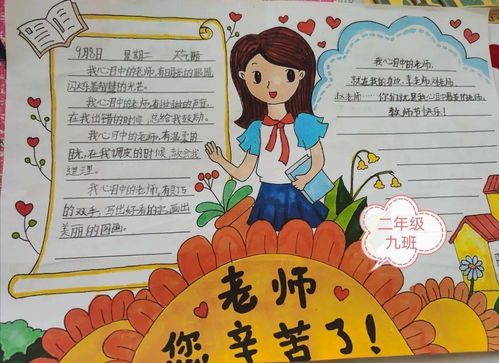 9月8日 星期二 天气晴
我心目中的老师,有明亮的眼睛
闪烁着智慧的光芒。
我心目中的老师,有甜甜的声音,
在我出错的时候,总给我鼓励。
我心目中的老师,有温柔的
目光,在我调皮的时候,教会我
道理。
我心目中的老师,有灵巧
的双手,写出好看的字,画出
美丽的图画。
我心目中的老师,
就在我的身边,李老师、邓老师
赵老师……你们就是我心目中最美的老师。
教师节快乐!
二年级
九班
老师
您辛苦了!